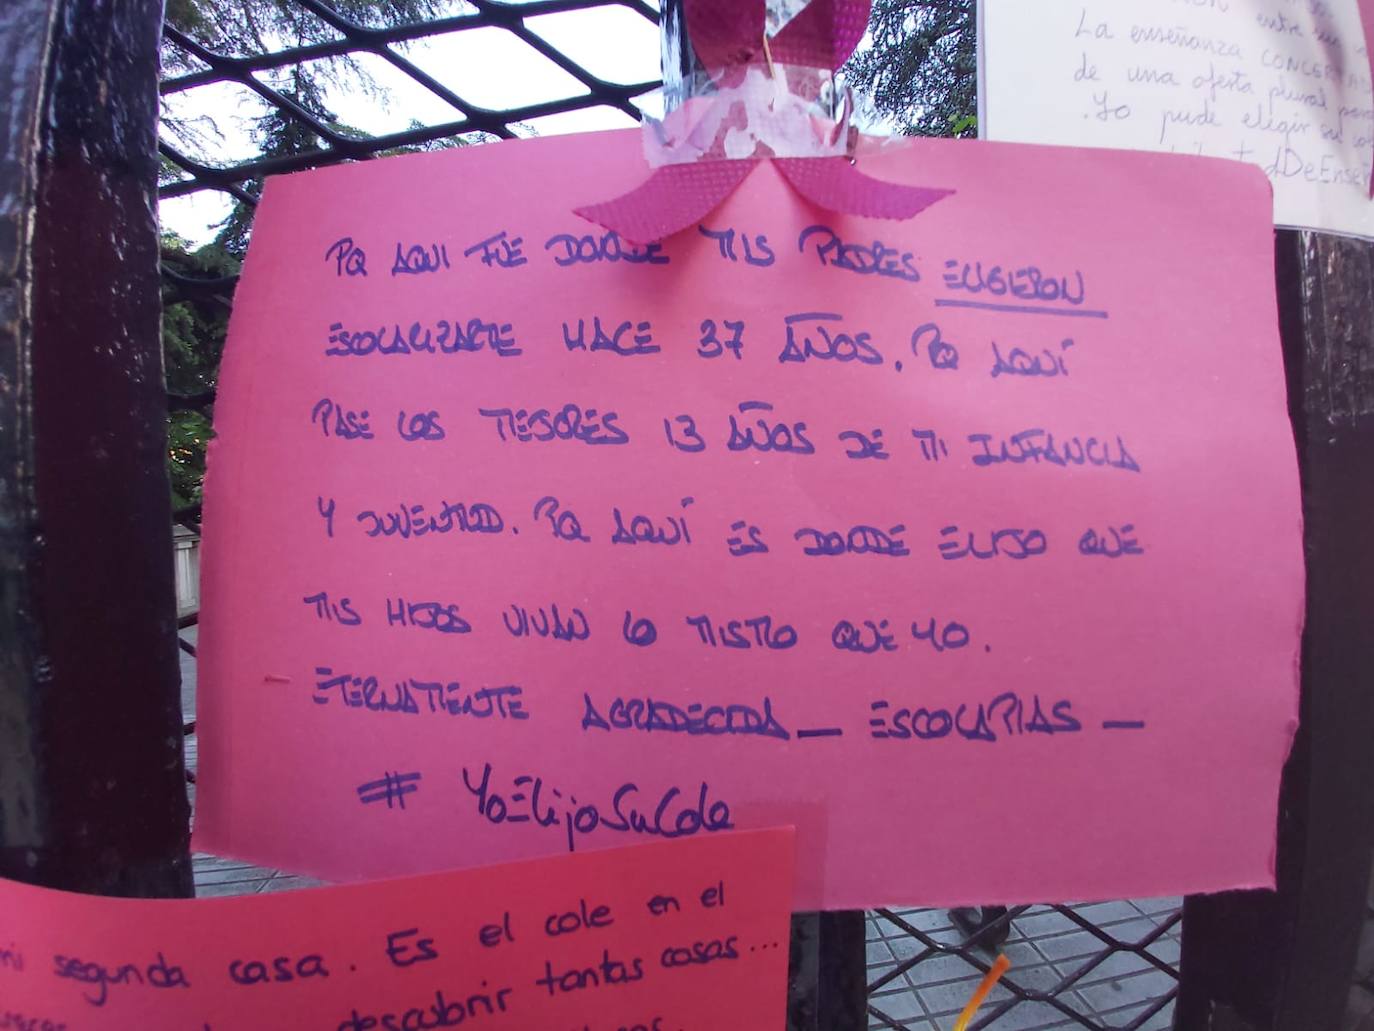 entre
La enseñanza CONCERTAD
de una oferta plural para
. Yo pude elegir su co
dDeEnseñ
PQ AQUI FUE DONDE MIS PADRES ELIGIERON
ESCOLARIZARME HACE 37 AÑOS. PQ AQUÍ
PASE LOS MEJORES 13 AÑOS DE MI INFANCIA
Y JUVENTUD. PQ AQUÍ ES DONDE ELIJO QUE
MIS HIJOS VIVAN LO MISMO QUE YO.
ETERNAMENTE AGRADECIDA_ ESCOLAPIAS _
# YoElijoSuCole
mi segunda casa. Es el cole en el
descubrir tantas cosas...